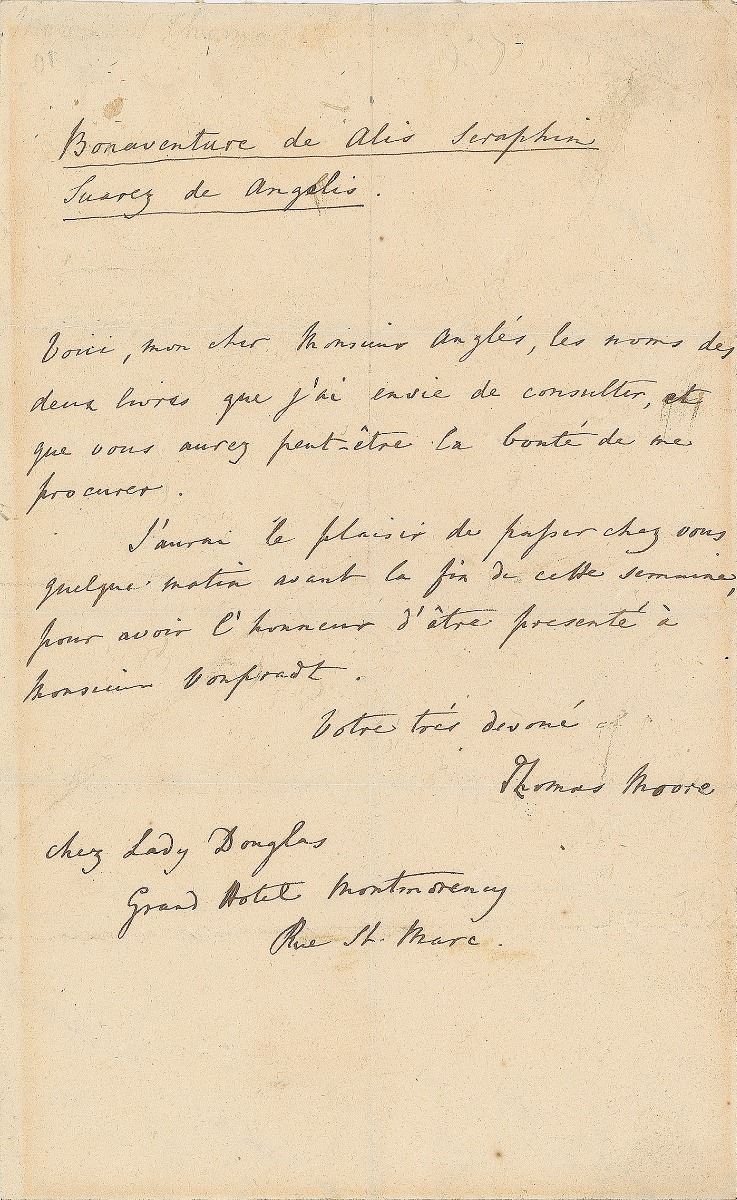 Bonaventure de Alis Seraphin
Suarez de Angelis.
Voici, mon cher Monsieur Anglés, les noms des
deux livres que j'ai envie de consulter, et
que vous aurez peut-être la bonté de me
procurer.
J'aurai le plaisir de passer chez vous
quelque matin avant la fin de cette semaine,
pour avoir l'honneur d'être presenté à
Monsieur Vonpradt.
Votre trés devoué
Thomas Moore
chez Lady Douglas
Grand Hotel Montmorency
Rue St. Marc.